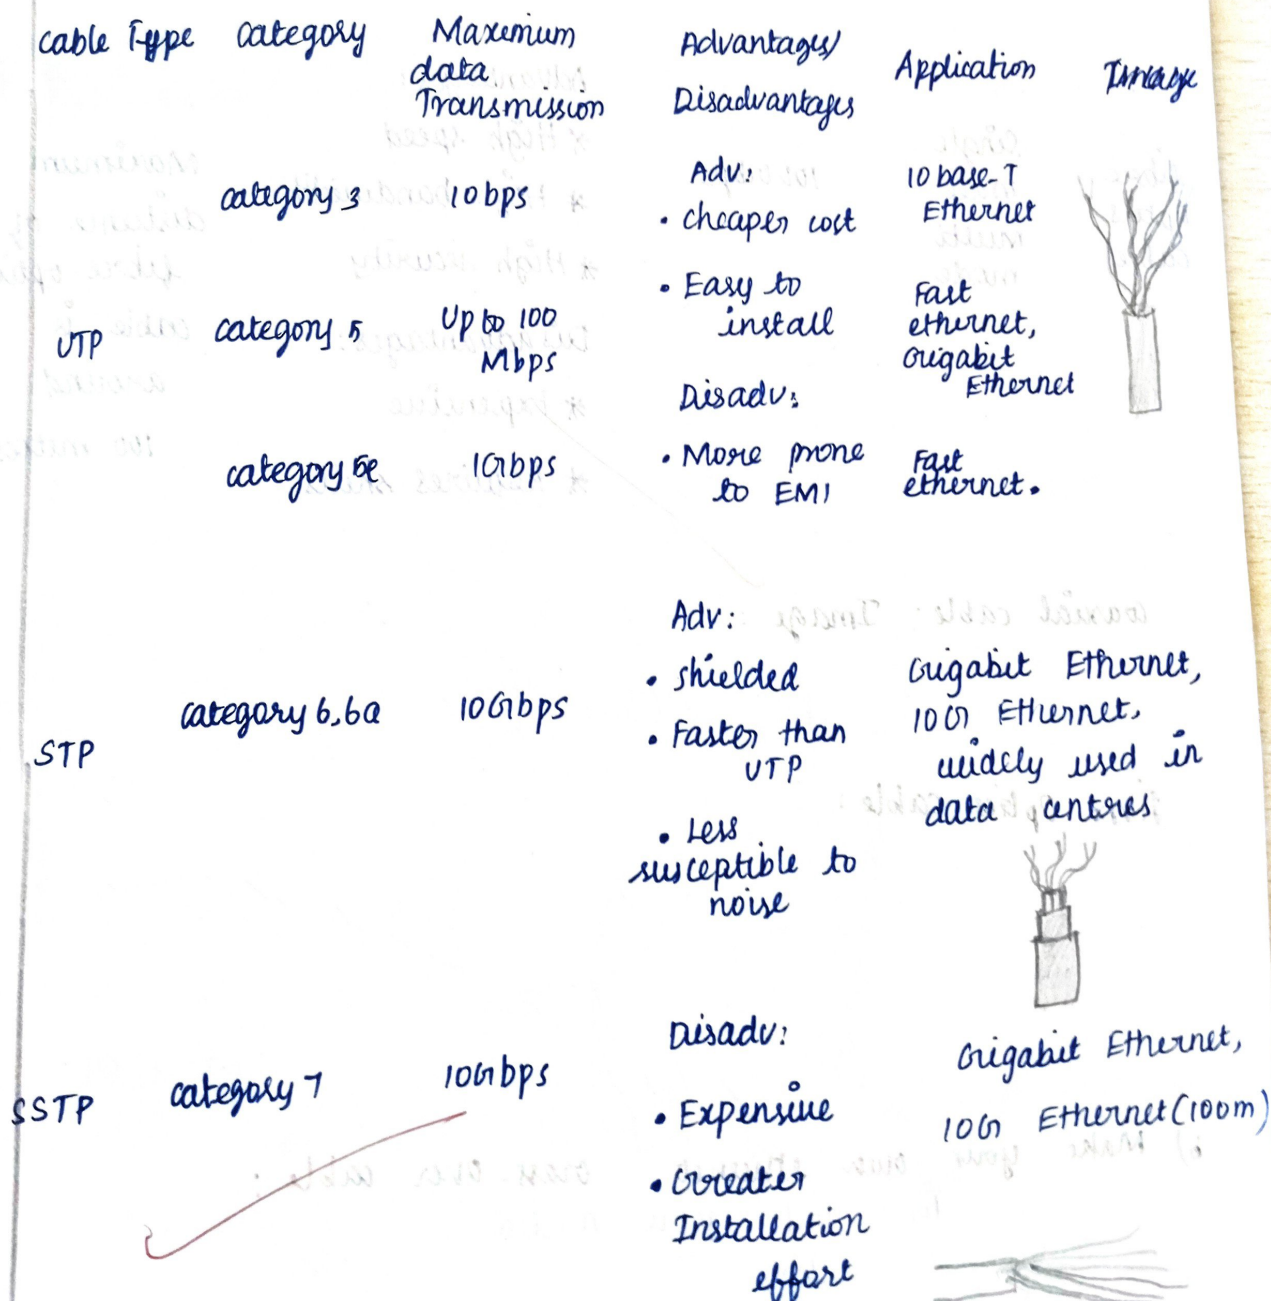 Cable Type Category Maximum data Transmission Advantages/ Disadvantages Application Image
UTP
category 3 10bps
category 5 Up to 100 Mbps
category 5e 1Gbps
Adv:
• cheaper cost
• Easy to install
Disadv:
• More prone to EMI
10 base-T Ethernet
Fast ethernet, Gigabit Ethernet
Fast ethernet.
STP
category 6,6a 10Gbps
Adv:
• shielded
• Faster than UTP
• Less susceptible to noise
Gigabit Ethernet,
10G Ethernet,
widely used in
data centres
SSTP
category 7 10Gbps
Disadv:
• Expensive
• Greater Installation effort
Gigabit Ethernet,
10G Ethernet(100m)